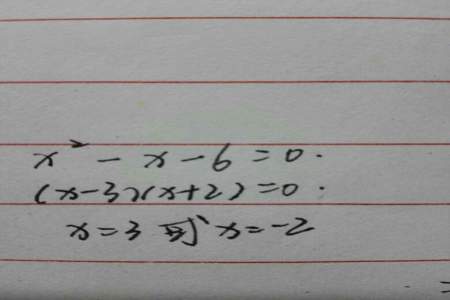 x² - x - 6 = 0.
(x-3)(x+2) = 0.
x = 3 x = -2